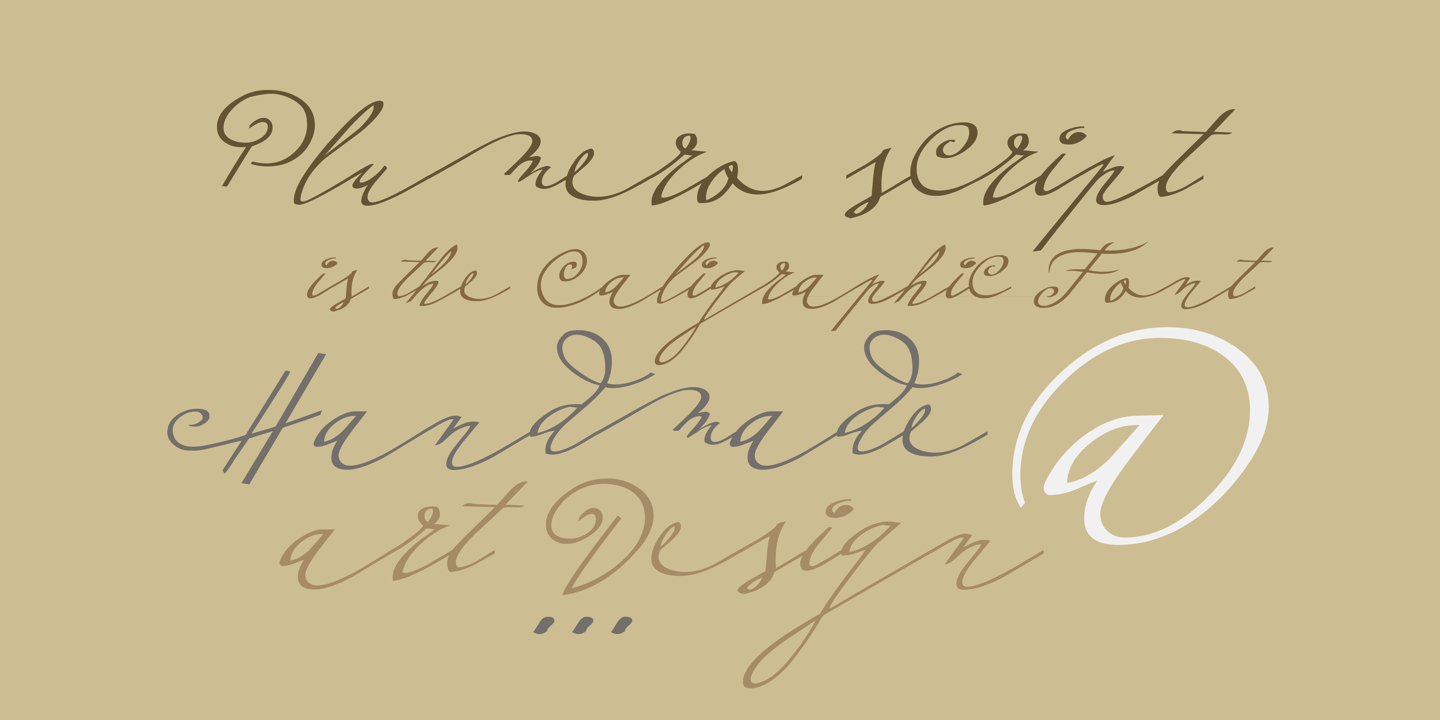 Plumero script
is the Caligraphic Font
Handmade @
art Design
...